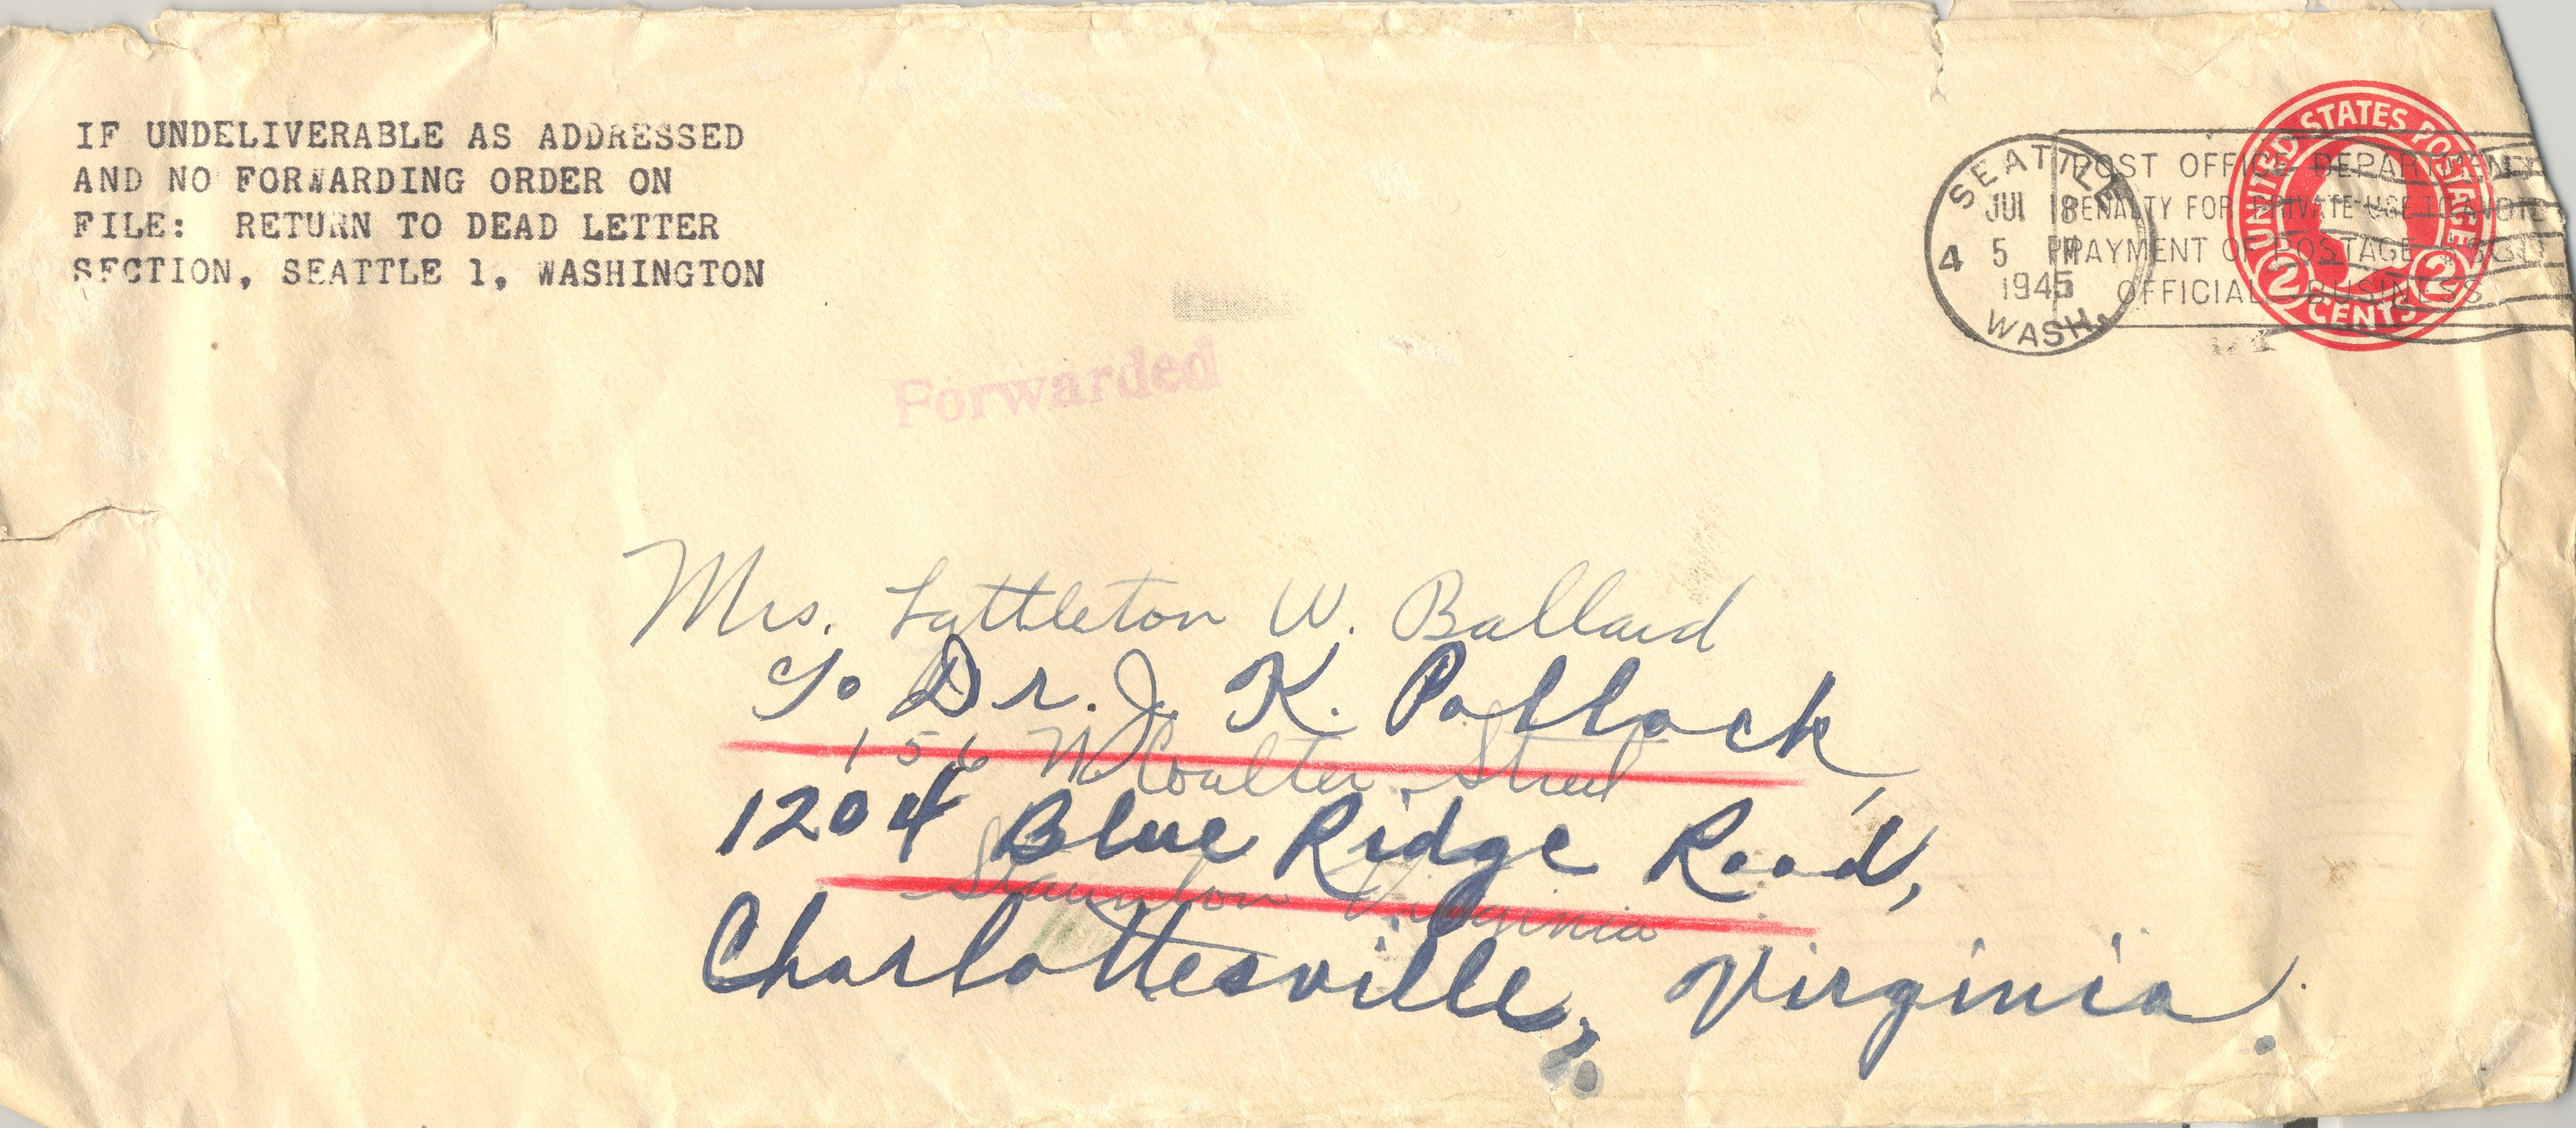 IF UNDELIVERABLE AS ADDRESSED
AND NO FORWARDING ORDER ON
FILE: RETURN TO DEAD LETTER
SECTION, SEATTLE 1, WASHINGTON
SEATTLE
JUL 18
4 5 PM
1945
WASH.
POST OFFICE DEPARTMENT
PENALTY FOR PRIVATE USE TO AVOID
PAYMENT OF POSTAGE $300
OFFICIAL BUSINESS
UNITED STATES POSTAGE
2 CENTS 2
Forwarded
Mrs. Lyttleton W. Ballard
℅ Dr. J. K. Pollock,
156 N Coalter Street
1204 Blue Ridge Road,
Staunton Virginia
Charlottesville, Virginia.